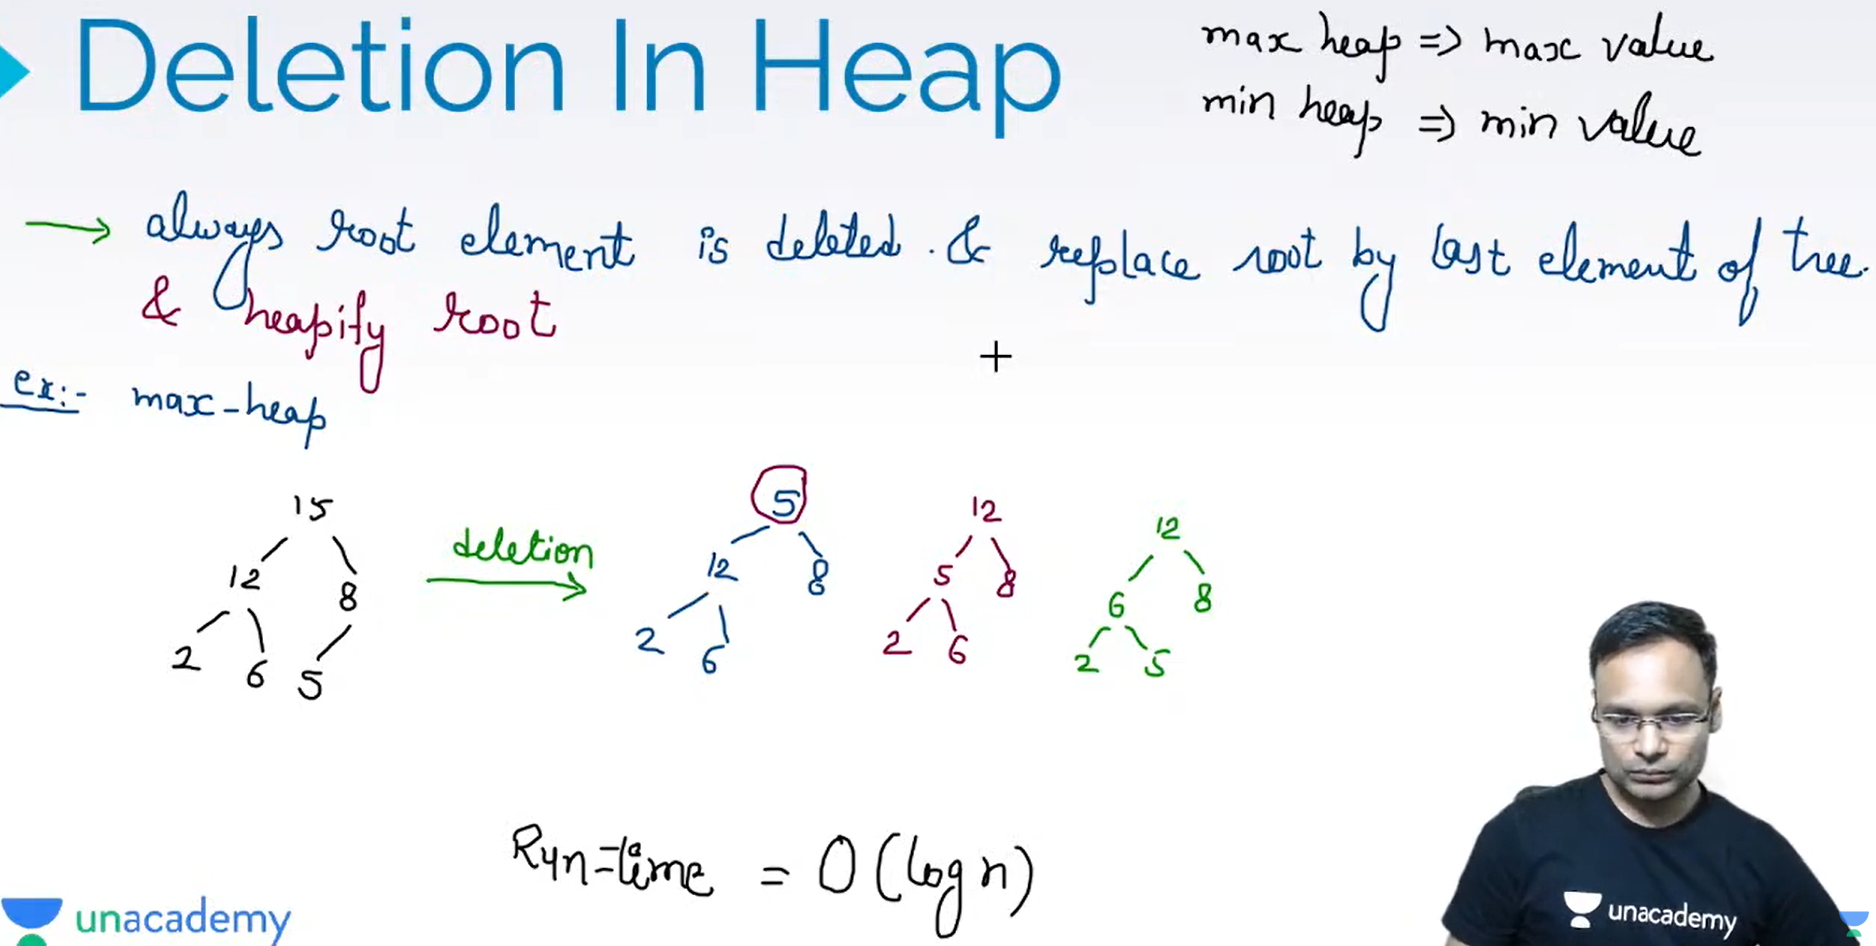 Deletion In Heap
max heap => max value
min heap => min value
→ always root element is deleted. & replace root by last element of tree.
& heapify root
ex:- max-heap
15
12 8
2 6 5
deletion
5
12 8
2 6
12
5 8
2 6
12
6 8
2 5
Run-time = O(log n)
unacademy
unacademy